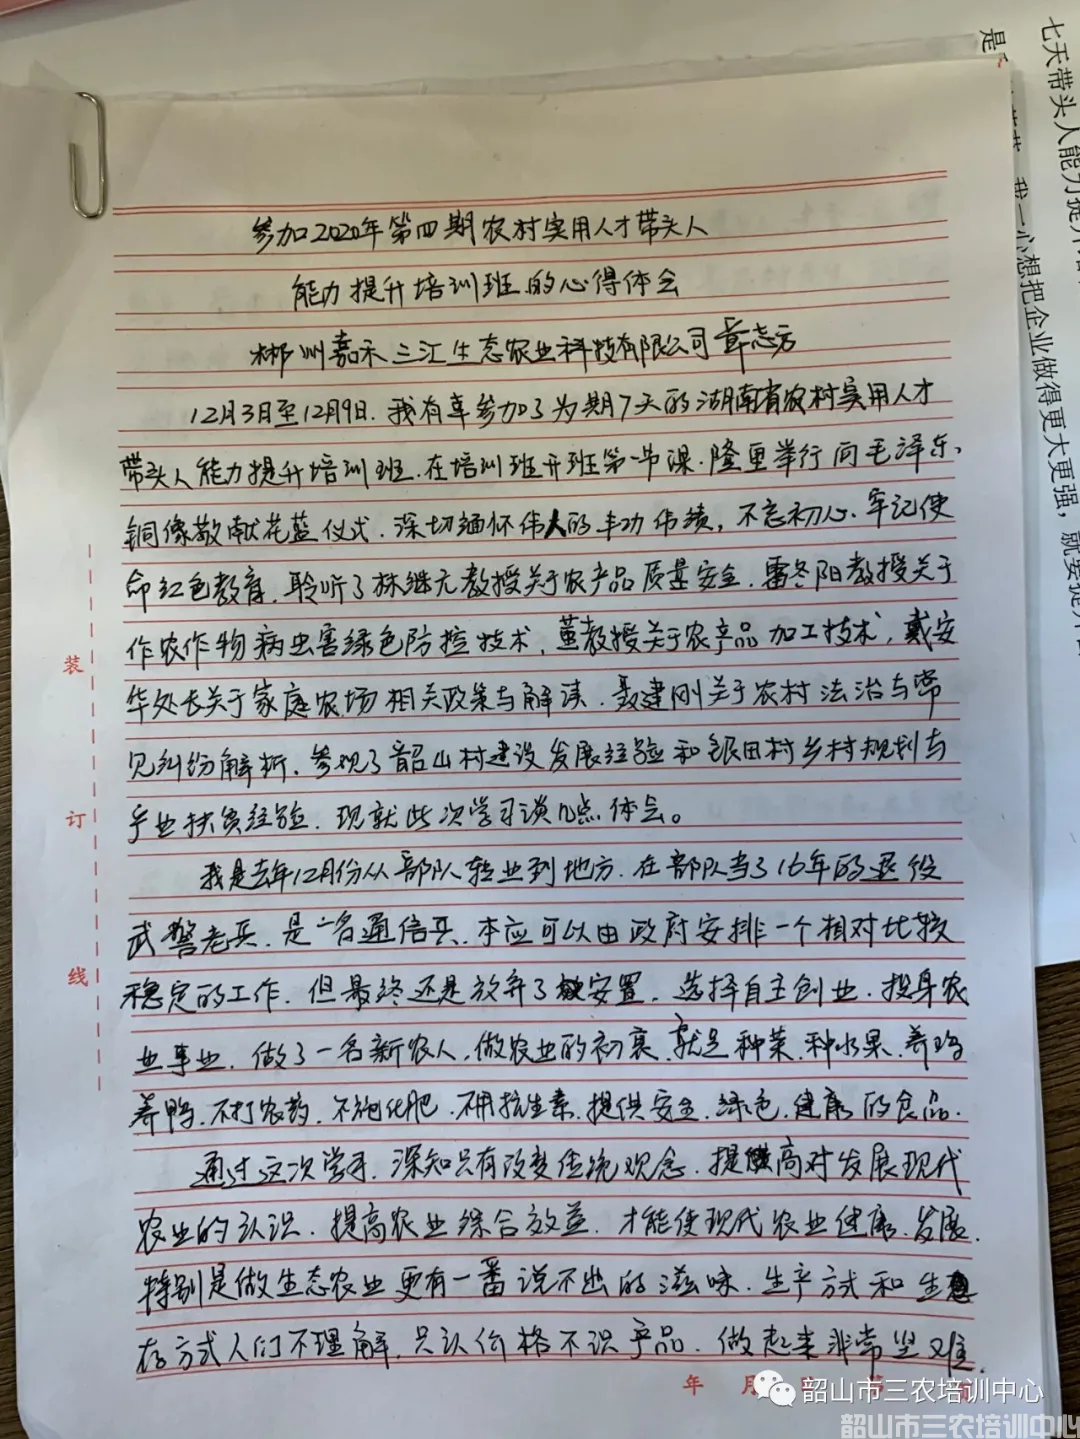 参加2020年第四期农村实用人才带头人
能力提升培训班的心得体会
郴州嘉禾三江生态农业科技有限公司 章志方
12月3日至12月9日.我有幸参加了为期7天的湖南省农村实用人才
带头人能力提升培训班.在培训班开班第一节课.隆重举行向毛泽东、
铜像敬献花蓝仪式.深切缅怀伟人的丰功伟绩,不忘初心.牢记使
命红色教育.聆听了林继元教授关于农产品质量安全.雷冬阳教授关于
作农作物病虫害绿色防控技术,董教授关于农产品加工技术,戴安
华处长关于家庭农场相关政策与解读.聂建刚关于农村法治与常
见纠纷解析.参观了韶山村建设发展经验和银田村乡村规划与
产业扶贫经验.现就此次学习谈几点体会。
我是去年12月份从部队转业到地方.在部队当了16年的退役
武警老兵.是一名通信兵.本应可以由政府安排一个相对比较
稳定的工作.但最终还是放弃了安置.选择自主创业.投身农
业事业.做了一名新农人,做农业的初衷.就是种菜.种水果.养鸡
养鸭.不打农药.不施化肥.不用抗生素.提供安全.绿色.健康的食品.
通过这次学习.深知只有改变传统观念.提高对发展现代
农业的认识.提高农业综合效益.才能使现代农业健康.发展.
特别是做生态农业更有一番说不出的滋味.生产方式和生
存方式人们不理解.只认价格不识产品.做起来非常坚难.
装
订
线
年 月 第
七天带头人能力提升
是
我一心想把企业做得更大更强，就要提升
韶山市三农培训中心
韶山市三农培训中心